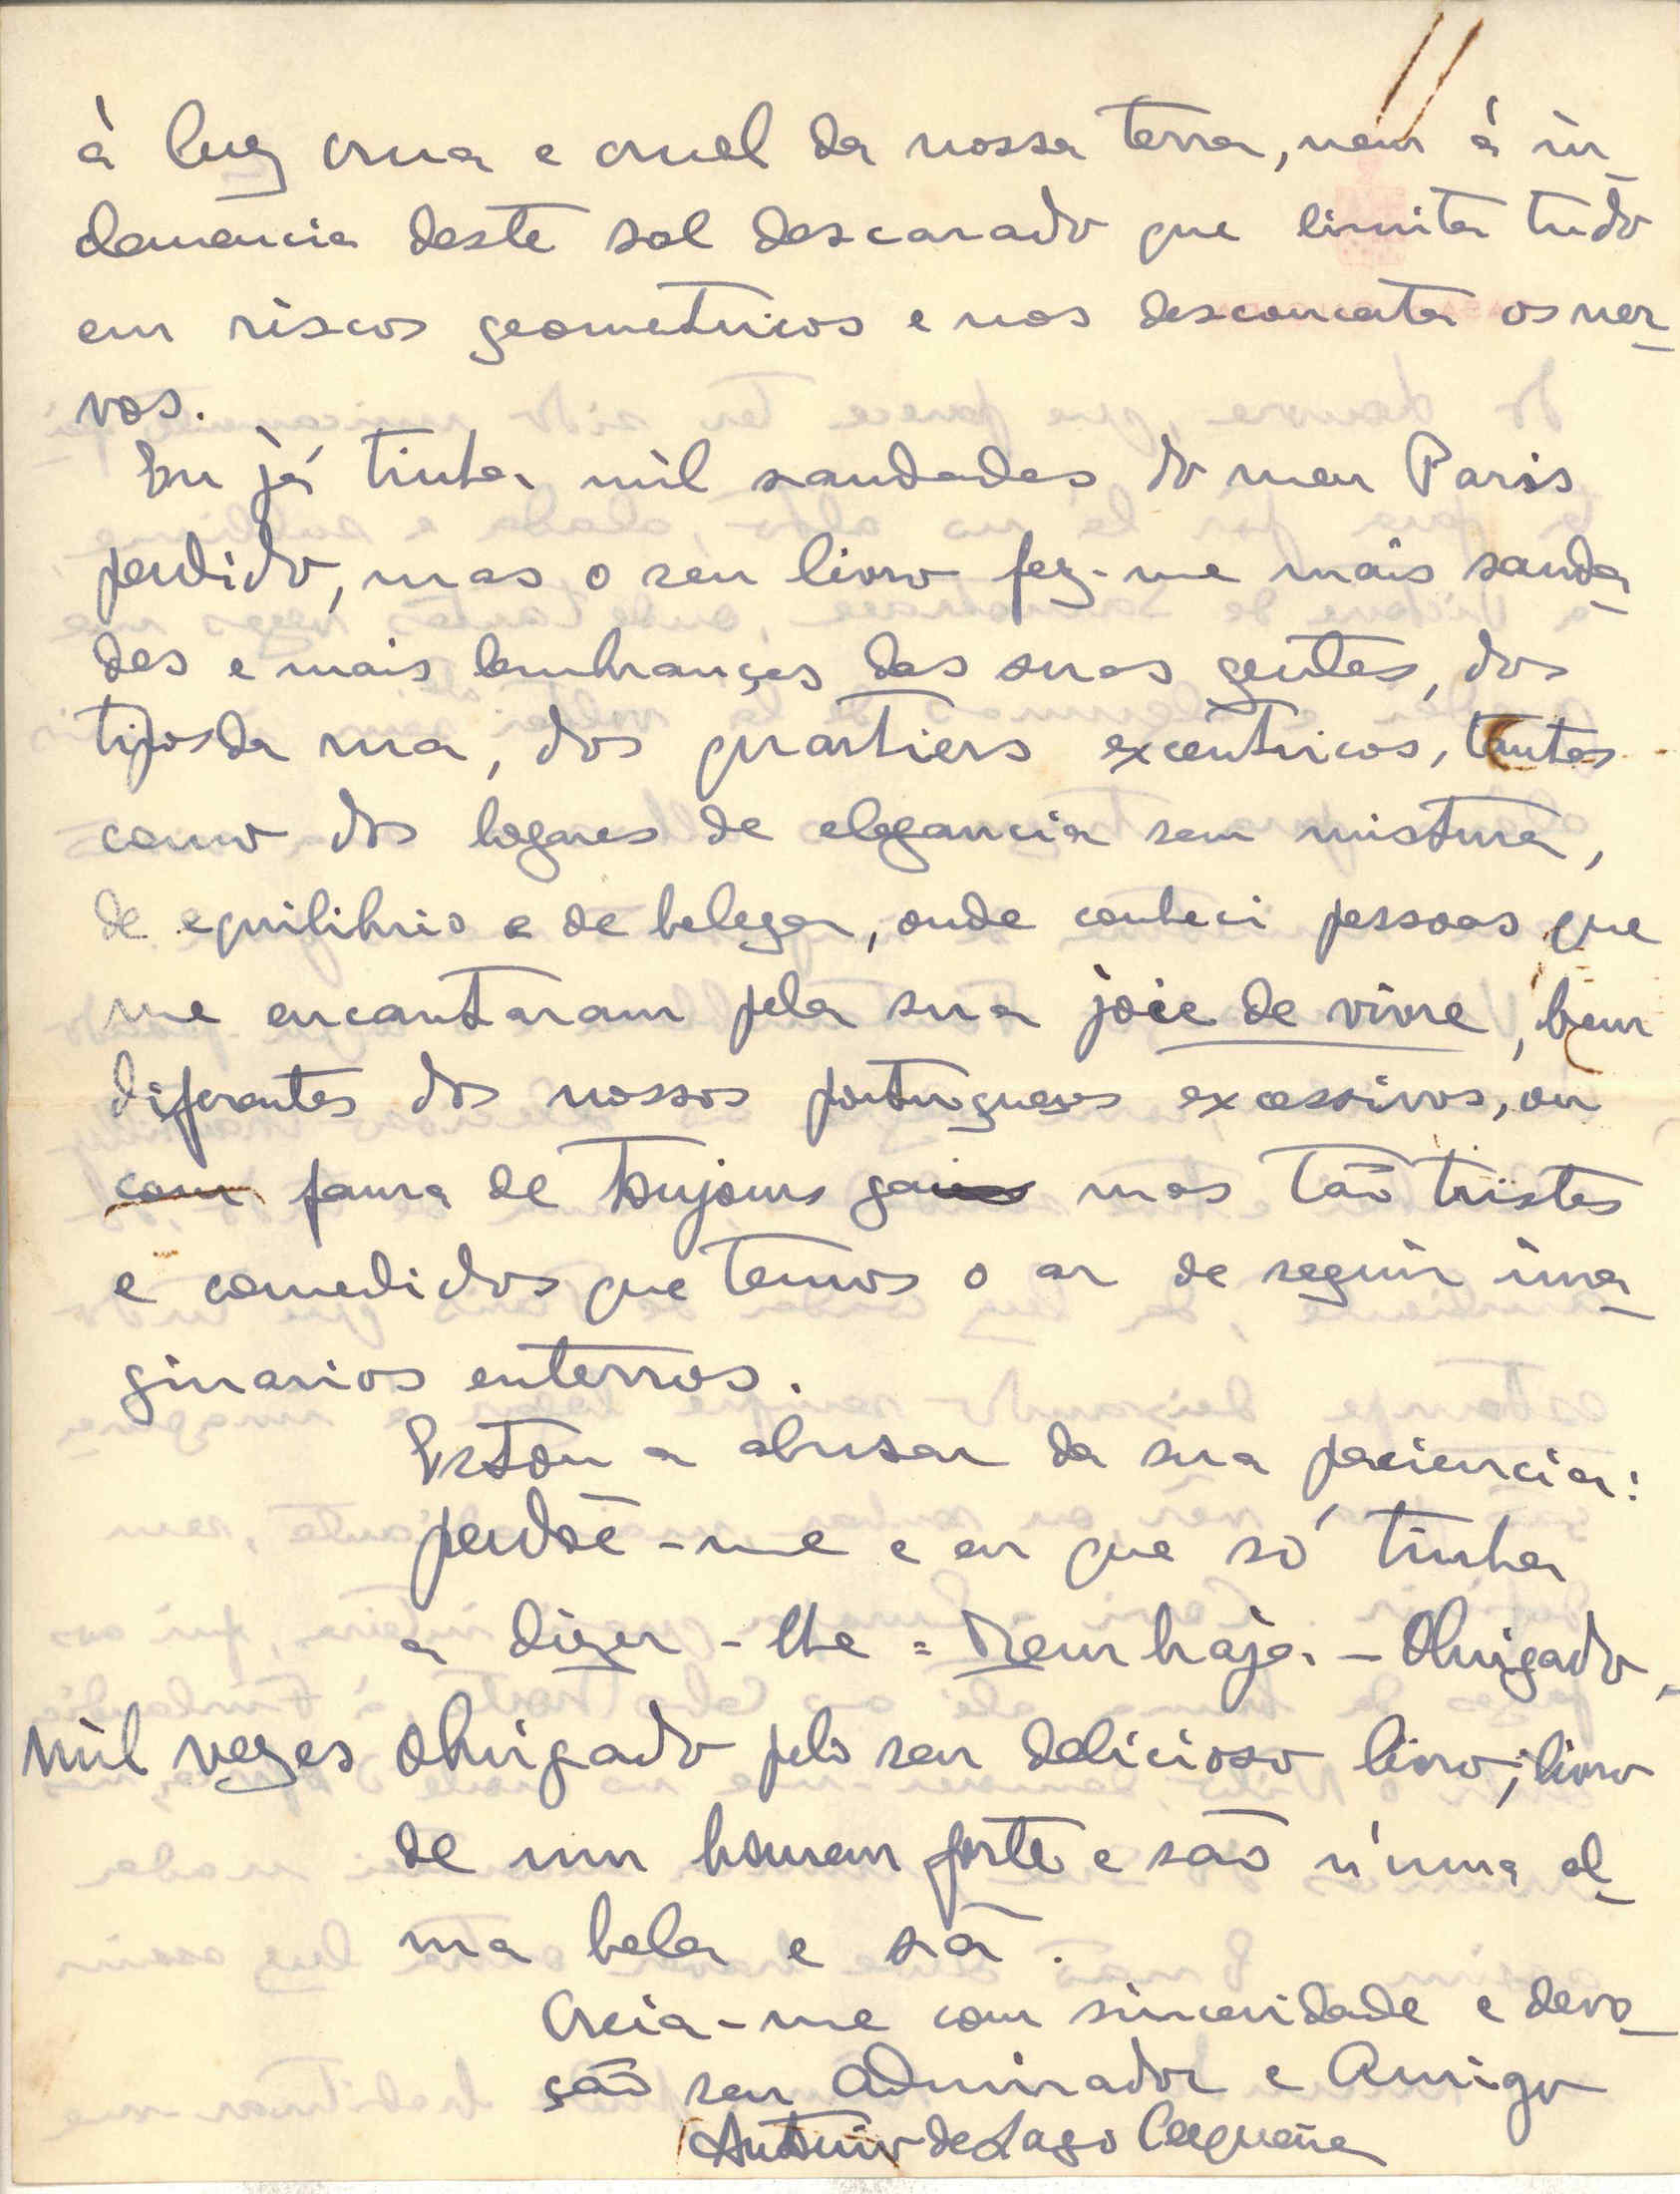 à luz crua e cruel da nossa terra, nem á in
clemencia deste sol descarado que limita tudo
em riscos geometricos e nos desconcerta os ner
vos.
Eu já tinha mil saudades do meu Paris
perdido, mas o seu livro fez-me mais sauda
des e mais lembranças das suas gentes, dos
tipos da rua, dos quartiers excentricos, tantas
como dos logares de elegancia sem mistura,
de equilibrio e de beleza, onde conheci pessoas que
me encantaram pela sua joie de vivre, bem
diferentes dos nossos portugueses excessivos, ou
com fama de toujours gais mas tão tristes
e comedidos que temos o ar de seguir ima
ginarios enterros.
Estou a abusar da sua paciencia:
perdõe-me e eu que só tinha
a dizer-lhe = Bem haja. - Obrigado,
mil vezes obrigado pelo seu delicioso livro; livro
de um homem forte e são n'uma al
ma bela e sã.
Creia-me com sinceridade e devo
ção seu Admirador e Amigo
Antonio de Lago Cerqueira